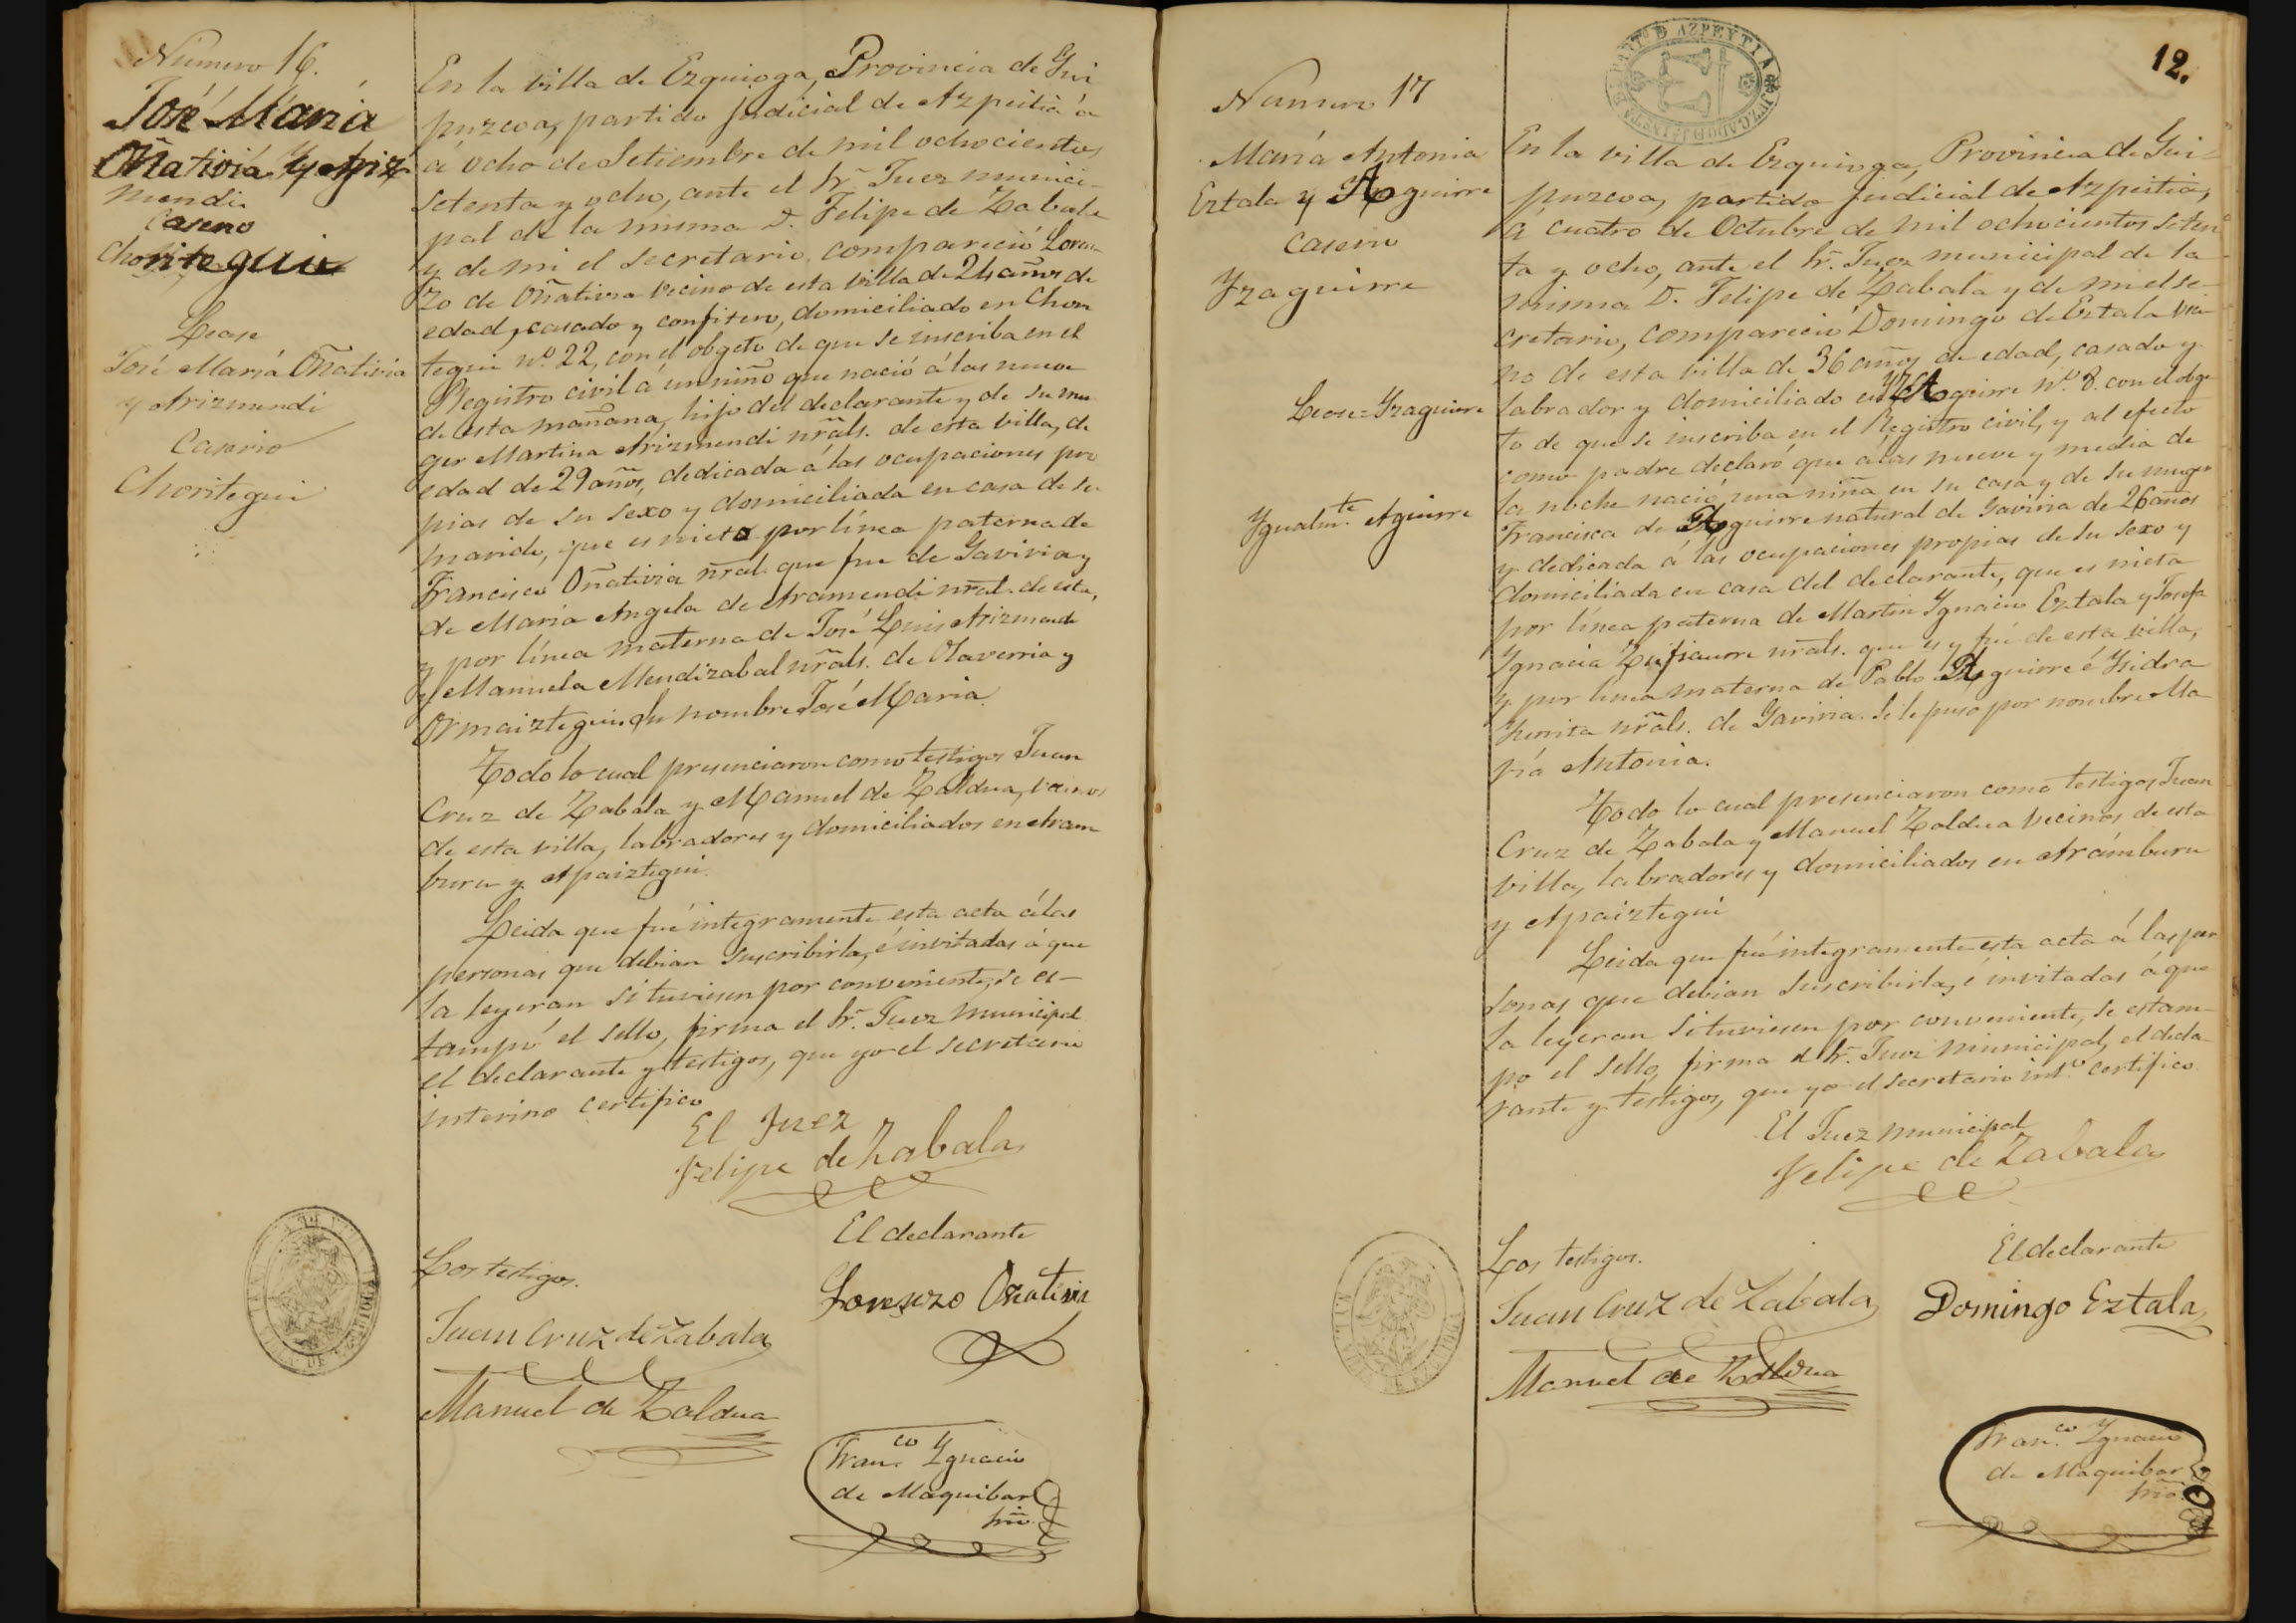 Número 16.
José María
Oñativia y Ariz
mendi
Caserio
Choritegui
Lease
José María Oñativia
y Arizmendi
Caserio
Choritegui
En la villa de Ezquioga, Provincia de Gui
puzcoa, partido judicial de Azpeitia á
á ocho de Setiembre de mil ochocientos
setenta y ocho, ante el Sr. Juez munici-
pal de la misma D. Felipe de Zabala
y de mi el secretario, compareció Loren-
zo de Oñativia vecino de esta villa de 24 años de
edad, casado y confitero, domiciliado en Chori
tegui nº. 22, con el obgeto de que se inscriba en el
Registro civil á un niño que nació á las nueve
de esta mañana, hijo del declarante y de su mu
ger Martina Arizmendi nrals. de esta villa, de
edad de 29 años, dedicada á las ocupaciones pro
pias de su sexo y domiciliada en casa de su
marido, que es nieto por línea paterna de
Francisco Oñativia nral. que fue de Gaviria y
de María Angela de Aramendi nral. de esta,
y por línea materna de José Luis Arizmendi
y Manuela Mendizabal nrals. de Olaverria y
Ormaiztegui. Su nombre José Maria.
Todo lo cual presenciaron como testigos Juan
Cruz de Zabala y Manuel de Zaldua, vecinos
de esta villa, labradores y domiciliados en Aram
buru y Apaiztegui.
Leida que fué integramente esta acta á las
personas que debian suscribirla, é invitadas á que
la leyeran si tuviesen por conveniente, se es-
tampó el sello, firma el Sr. Juez municipal
el declarante y testigos, que yo el secretario
interino certifico
El Juez
Felipe de Zabala
El declarante
Los testigos.
Lorenzo Oñativia
Juan Cruz de Zabala
Manuel de Zaldua
Franco. Ygnacio
de Maquibar
Srio.
12.
PARTº D AZPEYTIA
JUZGADO D 1ª INSTA
Numero 17
María Antonia
Eztala y Aguirre
Caserio
Yzaguirre
Lease = Yzaguirre
Ygualmte. Aguirre
En la villa de Ezquioga, Provincia de Gui-
puzcoa, partido judicial de Azpeitia,
á cuatro de Octubre de mil ochocientos seten
ta y ocho, ante el Sr. Juez municipal de la
misma D. Felipe de Zabala y de mi el se-
cretario, compareció Domingo de Eztala veci
no de esta villa de 36 años de edad, casado y
labrador y domiciliado en Yzaguirre Nº. 8. con el obge
to de que se inscriba en el Registro civil, y al efecto
como padre declaró que á las nueve y media de
la noche nació una niña en su casa y de su muger
Francisca de Aguirre natural de Gaviria de 26 años
y dedicada á las ocupaciones propias de su sexo y
domiciliada en casa del declarante, que es nieta
por línea paterna de Martin Ygnacio Eztala y Josefa
Ygnacia Zufiaurre nrals. que es y fué de esta villa,
y por línea materna de Pablo Aguirre é Ysidra
nrals. de Gaviria. Se le puso por nombre Ma
ría Antonia.
Todo lo cual presenciaron como testigos Juan
Cruz de Zabala y Manuel Zaldua vecinos de esta
villa, labradores y domiciliados en Arámburu
y Apaiztegui
Leida que fué integramente esta acta á las per
sonas que debian suscribirla, é invitadas á que
la leyeran si tuviesen por conveniente, se estam-
po el sello, firma el Sr. Juez municipal, el decla-
rante y testigos, que yo el secretario intº. certifico.
El Juez municipal
Felipe de Zabala
El declarante
Los testigos.
Juan Cruz de Zabala
Domingo Eztala
Manuel de Zaldua
Franco. Ygnacio
de Maquibar
Srio.